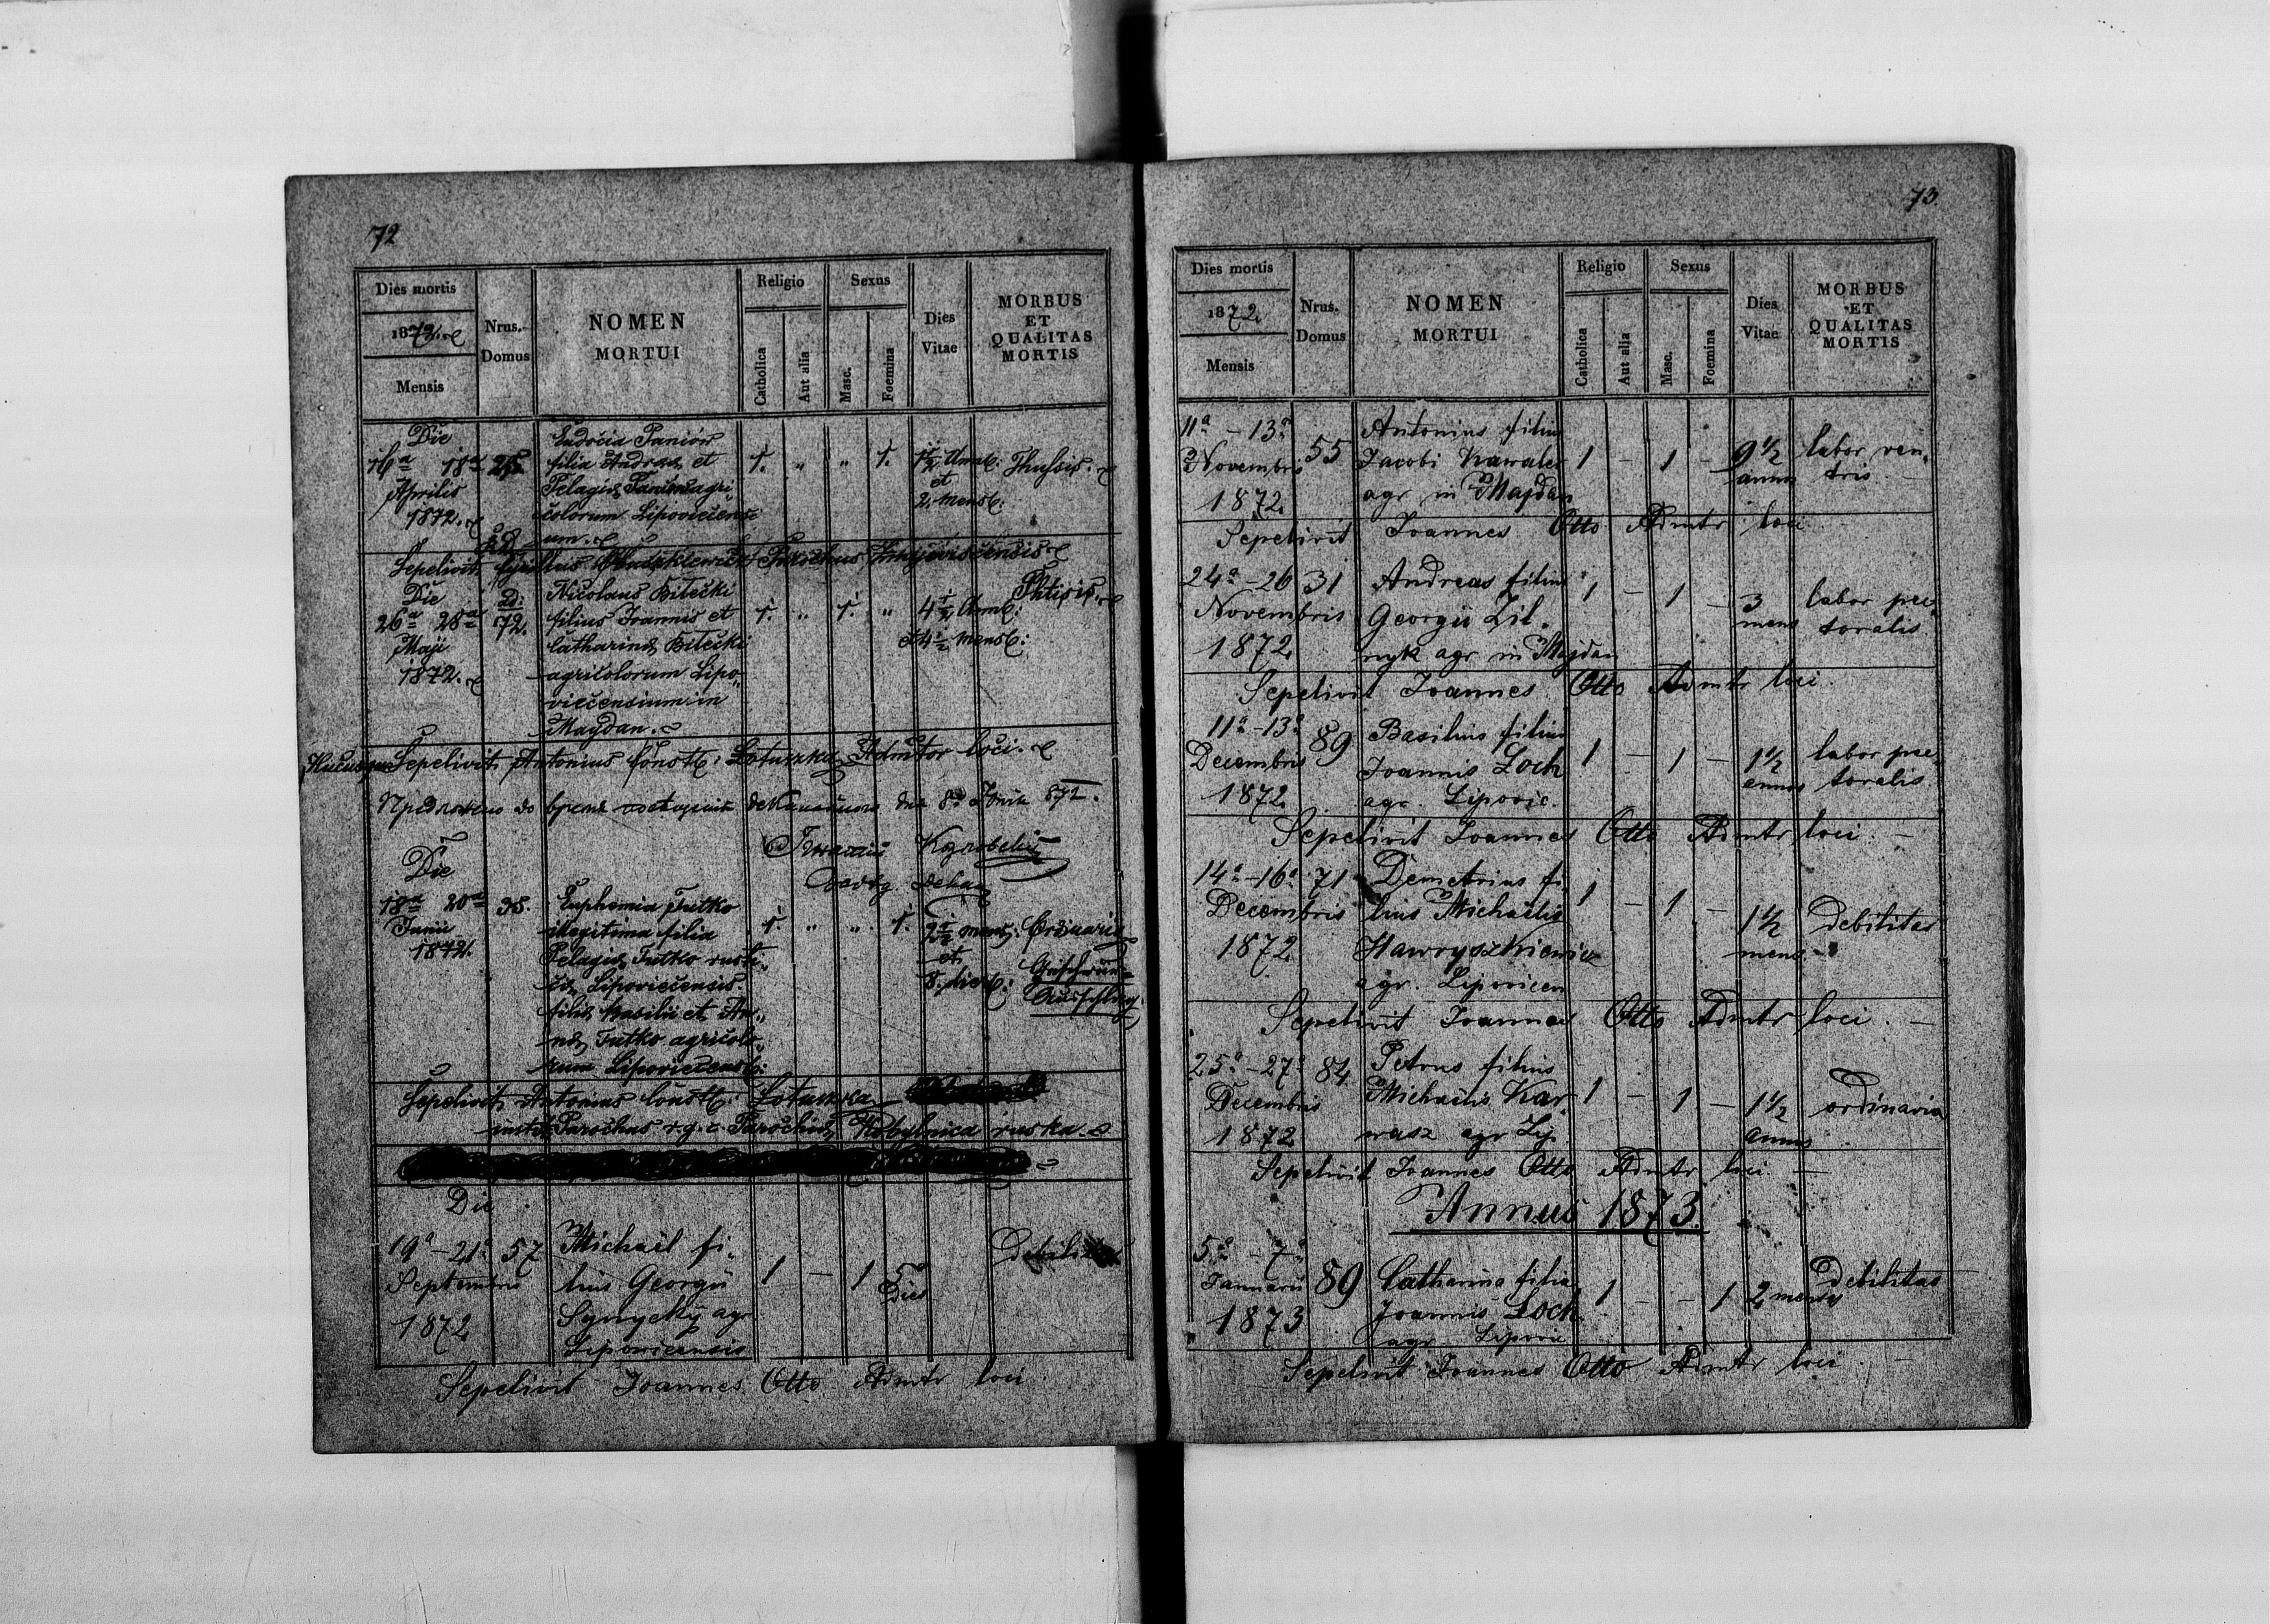 72
Dies mortis
1872.
Mensis
Nrus. Domus
NOMEN
MORTUI
Religio
Catholica
Aut alia
Sexus
Masc.
Foemina
Dies Vitae
MORBUS
ET
QUALITAS
MORTIS
Die
16a 18a
Aprilis
1872.
Eudocia Paniów
filia Andreæ et
Pelagiæ Paniów agri„
colorum Lipoviecensi„
um.
1. „ „ 1.
1½ Ann:
et
2. mens:
Sepelivit Cyrillus Parochus
Die
26a 28a
Maji
1872.
ad:
72.
Nicolaus Bilecki
filius Joannis et
Catharinæ Bilecki
agricolorum Lipo„
viecensium in
Maydan.
1. „ 1. „
4½ Ann:
et 4½ mens:
Phtisis.
Hucusque Sepelivit Antonius Const: Lotuszka Admtor loci.
Die
18a 20a
Junii
1872.
38.
Euphemia Futko
illegitima filia
Pelagiæ Futko rusti„
cæ Lipoviecensis
filiæ Basilii et An„
næ Futko agricolo„
rum Lipoviecens:
1. „ „ 1.
2½ mens:
et
8. dies:
Ordinaria
Sepelivit Antonius Const: Lotuszka
instit: Parochus r. g. c. Parochiæ Kobylnica ruska.
Die
19a – 21a
Septembris
1872
57
Michael fi„
lius Georgii
Synycky agr
Lipoviecensis
1 – 1
5
Dies
Debilitas
Sepelivit Joannes Otto Admtr loci
73.
Dies mortis
1872.
Mensis
Nrus. Domus
NOMEN
MORTUI
Religio
Catholica
Aut alia
Sexus
Masc.
Foemina
Dies Vitae
MORBUS
ET
QUALITAS
MORTIS
11a – 13a
Novembris
1872.
55
Antonius filius
Jacobi Kawalec
agr in Majdan
1 – 1 –
9½
annos
labor ven„
tris. –
Sepelivit Joannes Otto Admtr loci
24a – 26
Novembris
1872
31
Andreas filius
Georgii Zil„
nyk agr in Majdan
1 – 1 –
3
mens
labor pec„
toralis
Sepelivit Joannes Otto Admtr loci.
11a – 13a
Decembris
1872.
89
Basilius filius
Joannis Loch
agr. Lipovic.
1 – 1 –
1½
annos
labor pec„
toralis.
Sepelivit Joannes Otto Admtr loci. –
14a – 16a
Decembris
1872
71
Demetrius fi„
lius Michaelis
Hawryszkiewicz
agr. Lipovicen
1 – 1 –
1½
mens
debilitas
Sepelivit Joannes Otto Admtr loci. –
25a – 27a
Decembris
1872
84
Petrus filius
Michaelis Kar„
wasz agr Lip.
1 – 1 –
1½
annos
ordinaria
Sepelivit Joannes Otto Admtr loci –
Annus 1873.
5a – 7a
Januarii
1873
89
Catharina filia
Joannis Loch
agr Lipovic
1 – – 1
2 menses
debilitas
Sepelivit Joannes Otto Admtr loci –